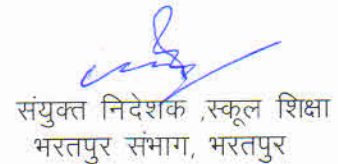 संयुक्त निदेशक ,स्कूल शिक्षा
भरतपुर संभाग, भरतपुर